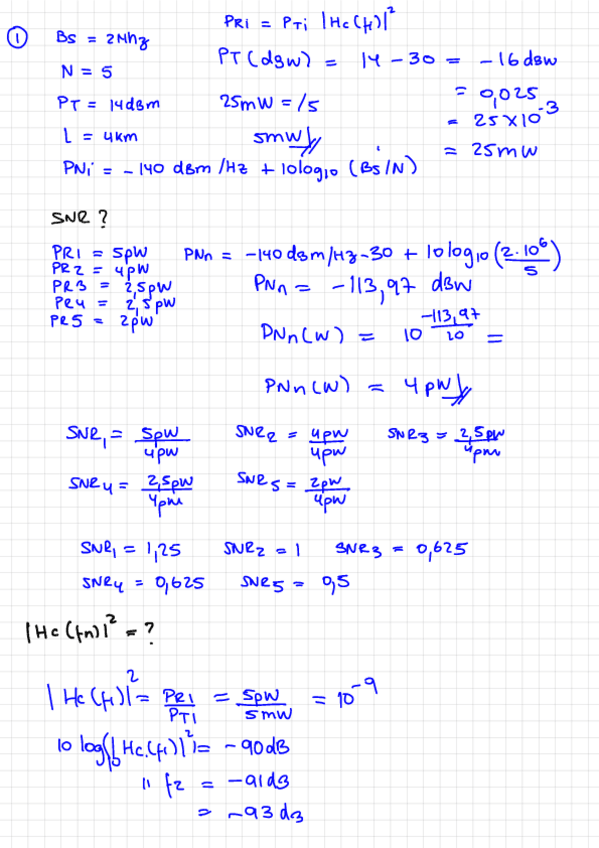 PRi = PTi |Hc(fi)|²
① Bs = 2Mhz
PT(dBW) = 14-30 = -16dBW
N = 5
= 0,025
PT = 14dBm
25mW = /5
= 25x10⁻³
L = 4km
5mW
= 25mW
PNi = -140 dBm/Hz + 10log₁₀ (Bs/N)
SNR ?
PR1 = 5pW
PNn = -140dBm/Hz-30 + 10log₁₀(2.10⁶/5)
PR2 = 4pW
PR3 = 2,5pW
PNn = -113,97 dBW
PR4 = 2,5pW
PR5 = 2pW
PNn(W) = 10^(-113,97/10) =
PNn(W) = 4pW
SNR₁ = 5pW/4pW SNR₂ = 4pW/4pW SNR₃ = 2,5pW/4pW
SNR₄ = 2,5pW/4pW SNR₅ = 2pW/4pW
SNR₁ = 1,25 SNR₂ = 1 SNR₃ = 0,625
SNR₄ = 0,625 SNR₅ = 0,5
|Hc(fn)|² = ?
|Hc(f₁)|² = PR1/PT1 = 5pW/5mW = 10⁻⁹
10 log₁₀(|Hc(f₁)|²) = -90dB
" f₂ = -91dB
= -93dB